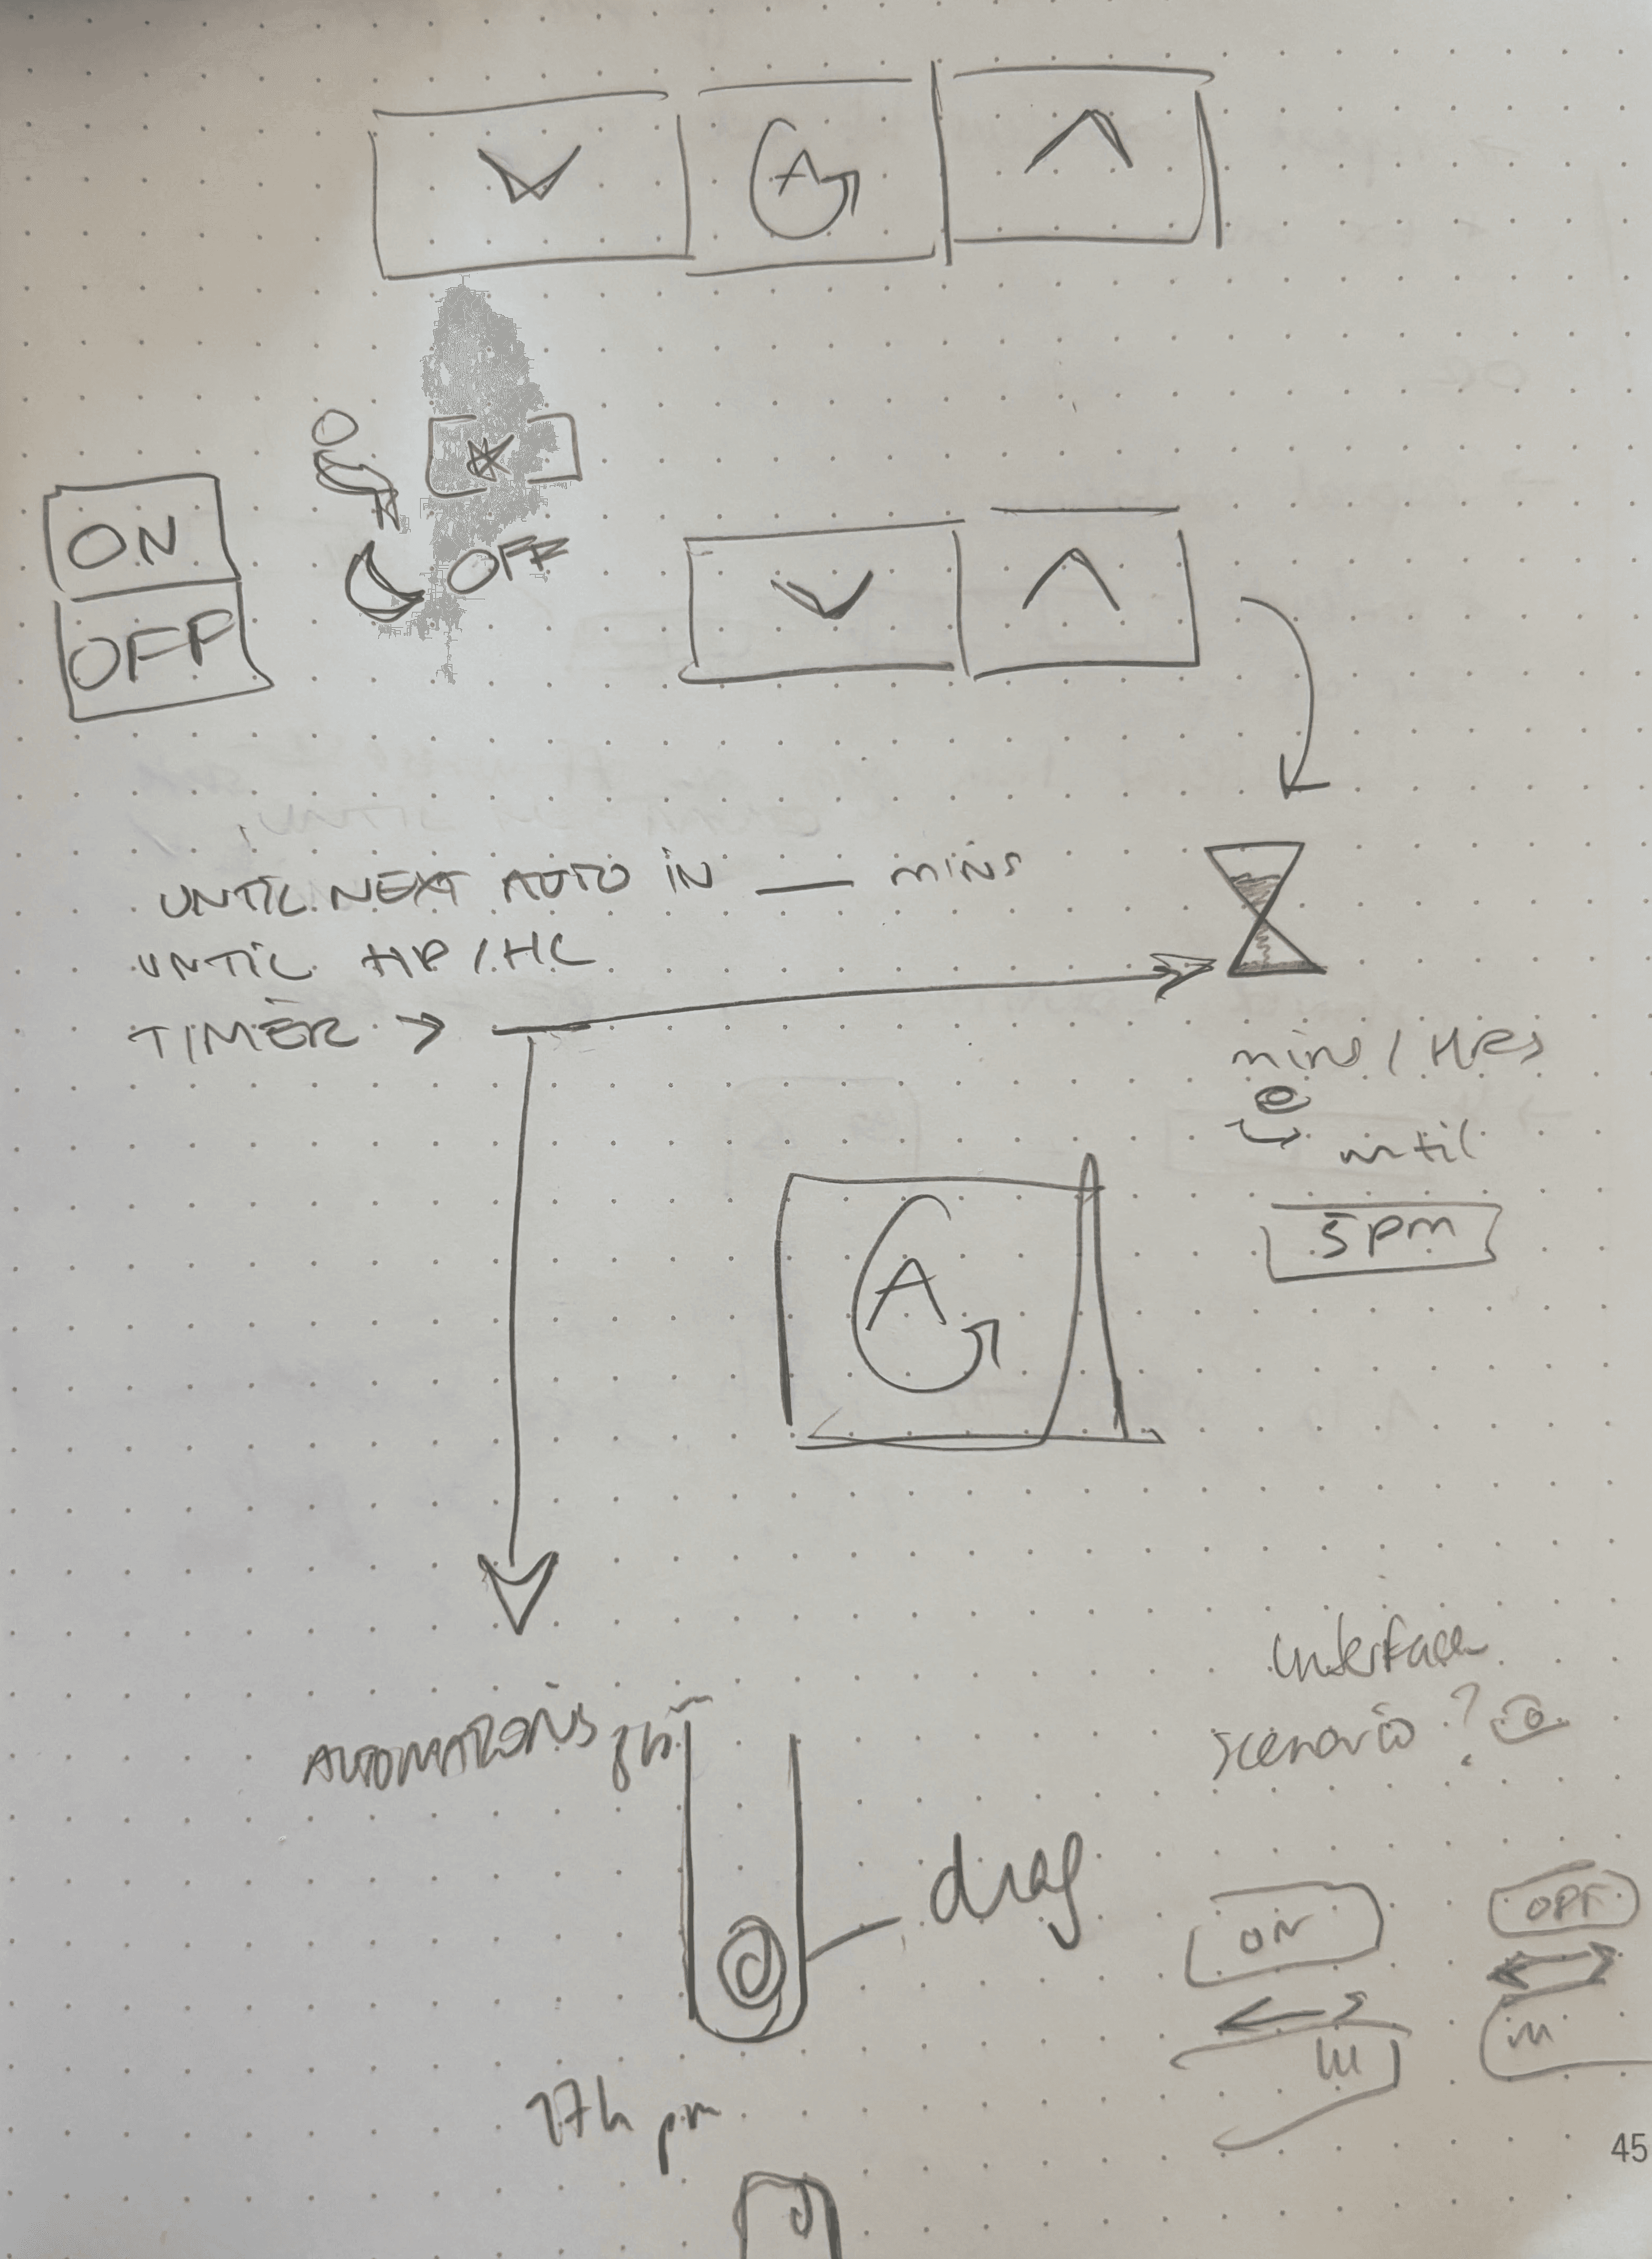 A
ON
OFF
OFF
UNTIL NEXT AUTO IN ___ mins
UNTIL HP / HC
TIMER →
mins / HRS
until
5 pm
A
interface
scenario ?
AUTOMATIONS 8h
drag
ON
OFF
17h pm
45